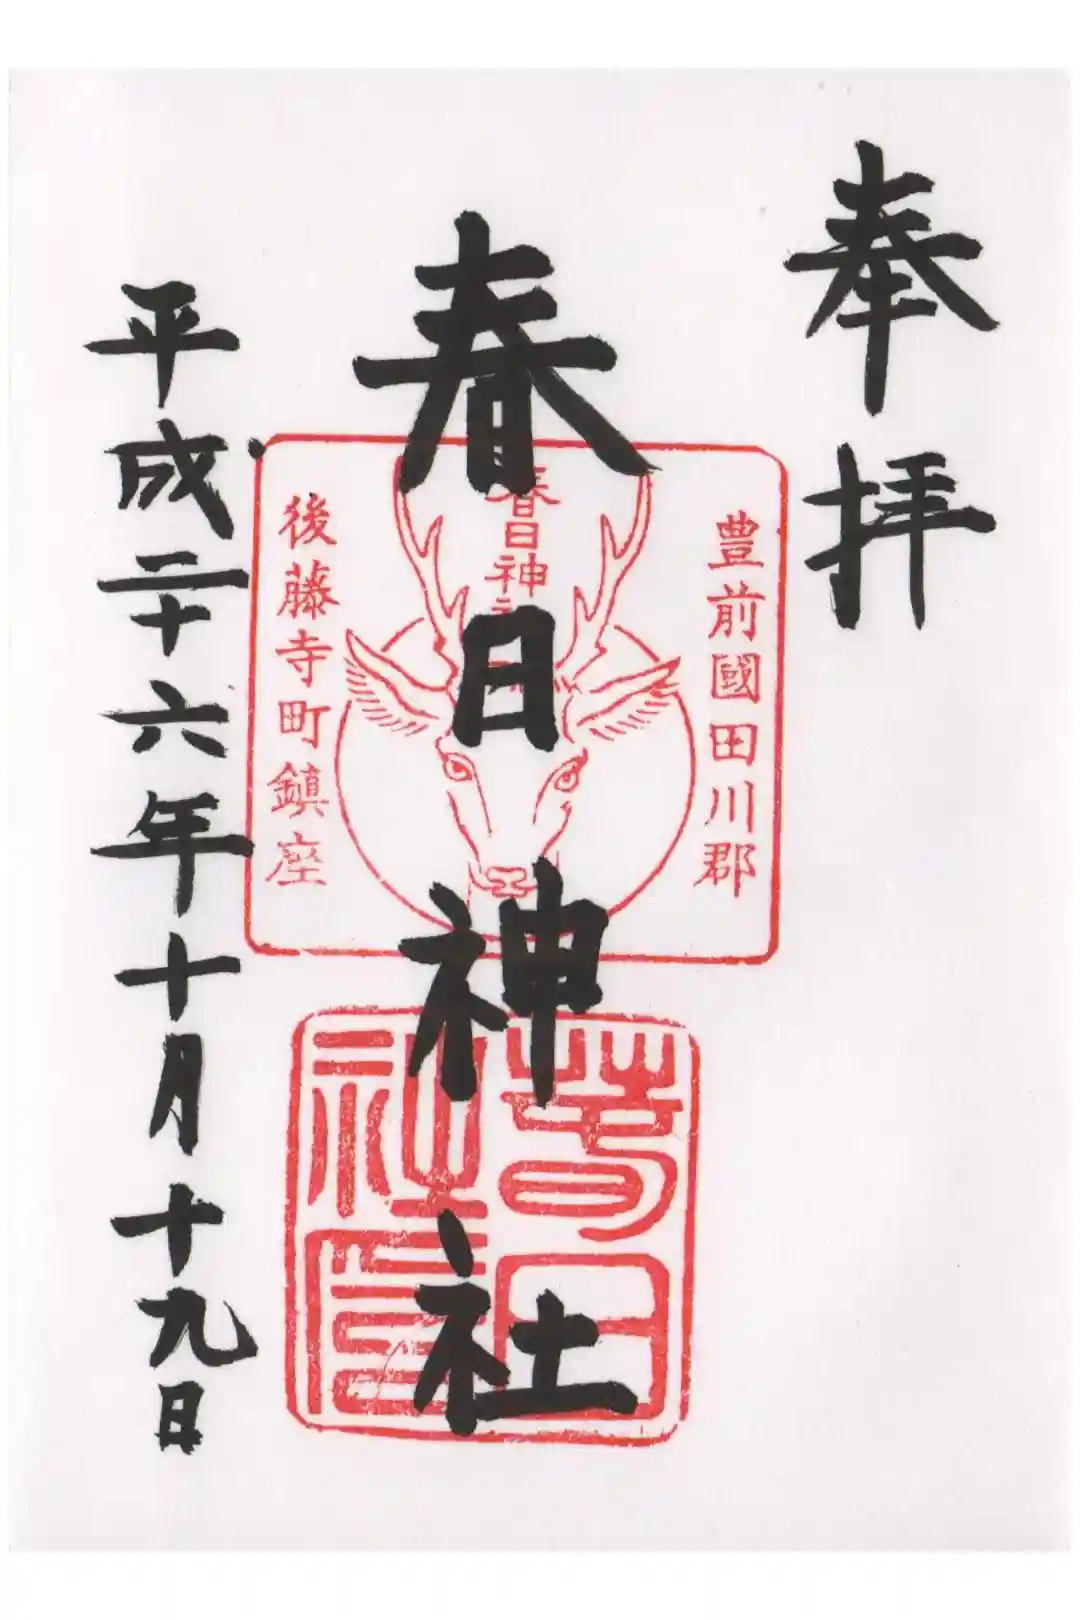 奉拝
豊前國田川郡
春日神社
春日神社
後藤寺町鎮座
春日
社印
平成二十六年十月十九日